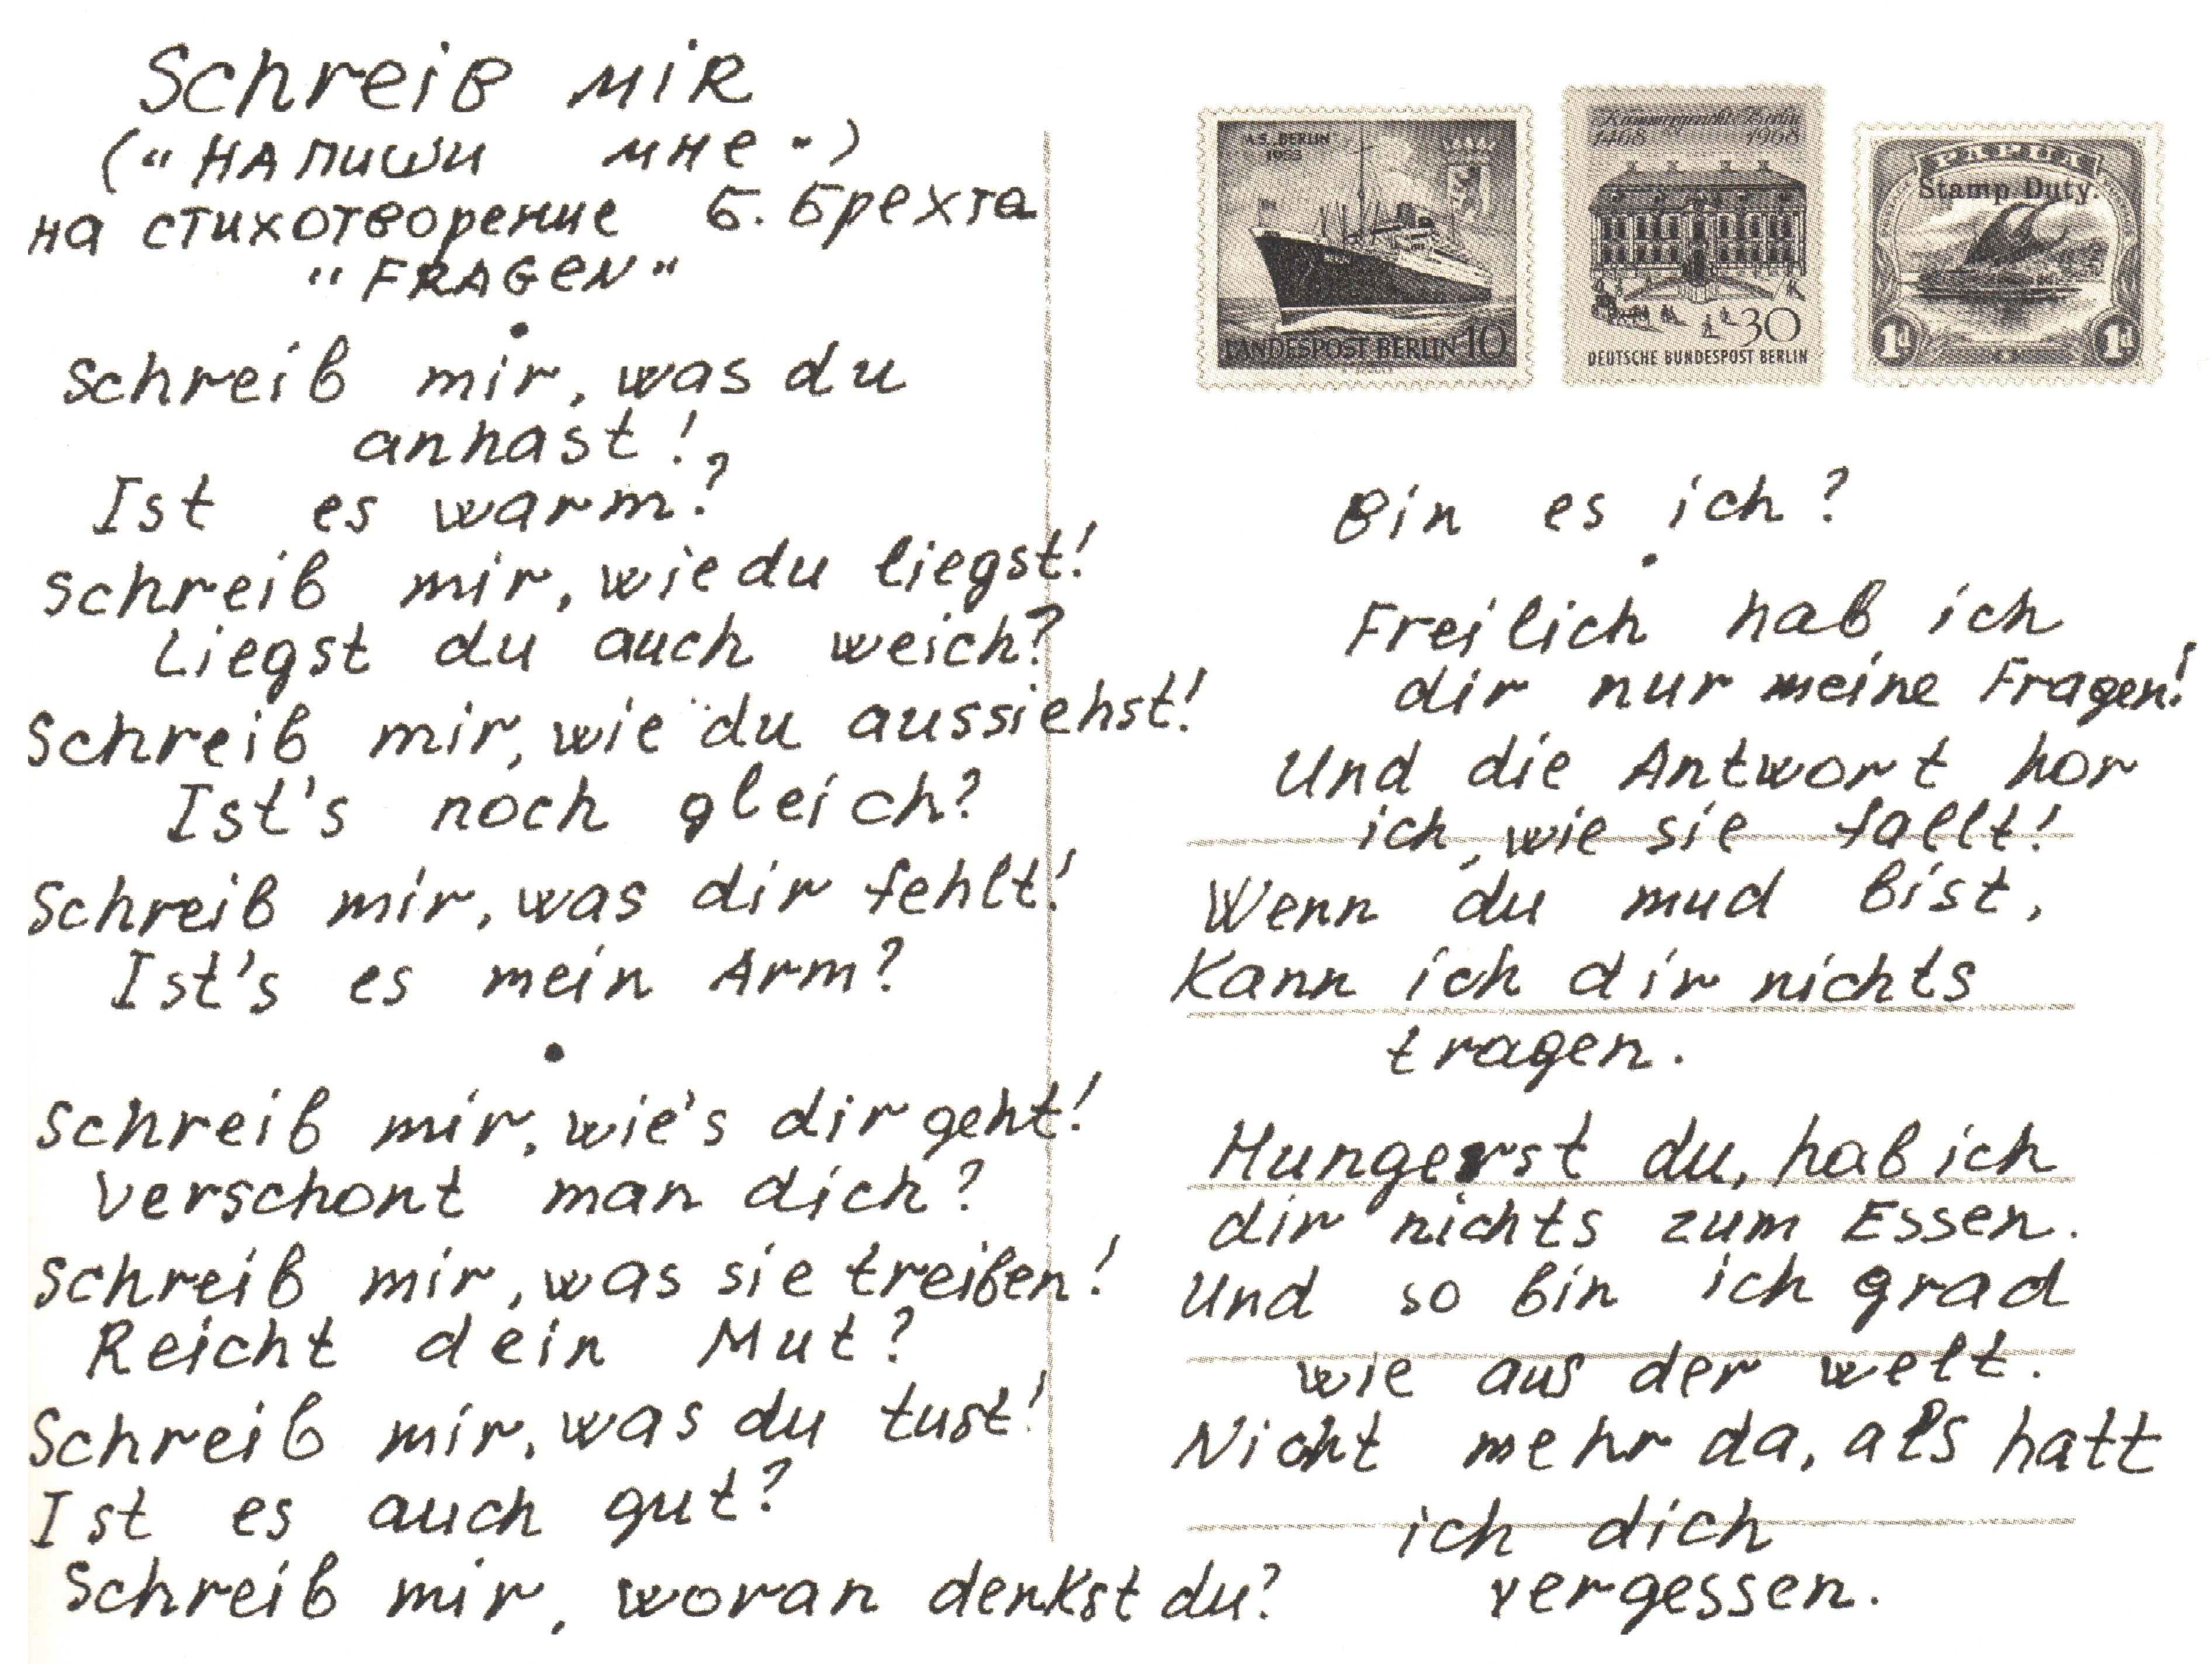 Schreib mir
("Напиши мне")
на стихотворение Б. Брехта
"FRAGEN"
Schreib mir, was du
anhast!
Ist es warm?
Schreib mir, wie du liegst!
Liegst du auch weich?
Schreib mir, wie du aussiehst!
Ist's noch gleich?
Schreib mir, was dir fehlt!
Ist's es mein Arm?
Schreib mir, wie's dir geht!
Verschont man dich?
Schreib mir, was sie treiben!
Reicht dein Mut?
Schreib mir, was du tust!
Ist es auch gut?
Schreib mir, woran denkst du?
M.S. „BERLIN"
1955
LANDESPOST BERLIN 10
Kammergericht Berlin
1468 1968
30
DEUTSCHE BUNDESPOST BERLIN
PAPUA
Stamp Duty.
1d 1d
Bin es ich?
Freilich hab ich
dir nur meine Fragen!
Und die Antwort hor
ich, wie sie fallt!
Wenn du mud bist,
Kann ich dir nichts
tragen.
Hungerst du, hab ich
dir nichts zum Essen.
Und so bin ich grad
wie aus der welt.
Nicht mehr da, als hatt
ich dich
vergessen.